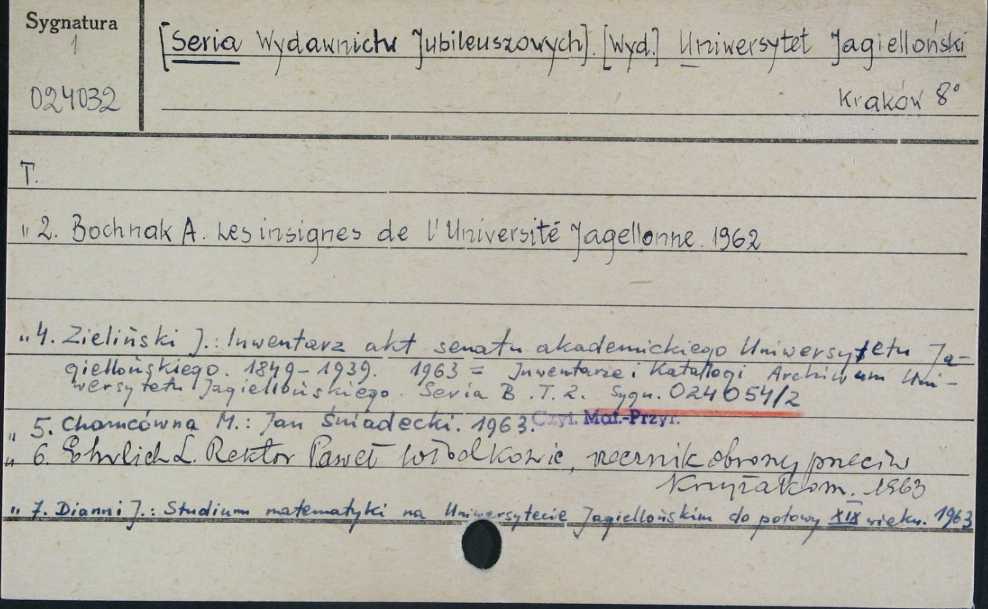 Sygnatura
1
024032
[Seria Wydawnictw Jubileuszowych]. [Wyd.] Uniwersytet Jagielloński
Kraków 8°
T.
" 2. Bochnak A. Les insignes de l'Université Jagellonne. 1962
" 4. Zieliński J.: Inwentarz akt senatu akademickiego Uniwersytetu Ja-
giellońskiego. 1849-1939. 1963 = Inwentarze i Katalogi Archiwum Uni-
wersytetu Jagiellońskiego. Seria B. T. 2. Sygn. 024054/2
" 5. Chamcówna M.: Jan Śniadecki. 1963. Czyt. Mat.-Przyr.
" 6. Ehrlich L. Rektor Paweł Włodkowic, rzecznik obrony przeciw
Krzyżakom. 1963
" 7. Dianni J.: Studium matematyki na Uniwersytecie Jagiellońskim do połowy XIX wieku. 1963